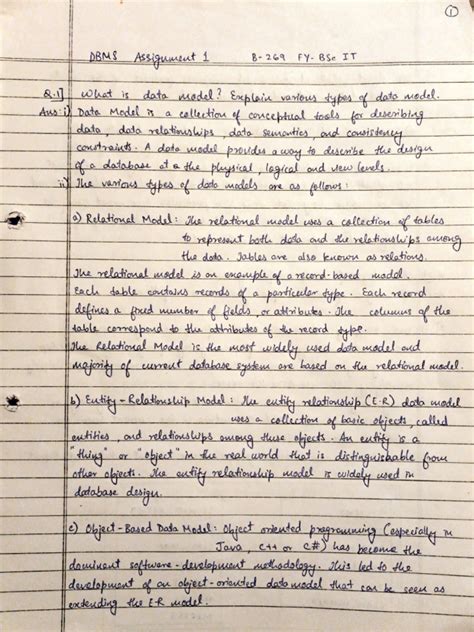 1
DBMS Assignment 1 B-269 FY-BSc IT
Q.1] What is data model? Explain various types of data model.
Ans: i) Data Model is a collection of conceptual tools for describing
data, data relationships, data semantics, and consistency
constraints. A data model provides a way to describe the design
of a database at a the physical, logical and view levels.
ii) The various types of data models are as follows:
a) Relational Model: The relational model uses a collection of tables
to represent both data and the relationships among
the data. Tables are also known as relations.
The relational model is an example of a record-based model.
Each table contains records of a particular type. Each record
defines a fixed number of fields, or attributes. The columns of the
table correspond to the attributes of the record type.
The Relational Model is the most widely used data model and
majority of current database system are based on the relational model.
b) Entity-Relationship Model: The entity relationship (E-R) data model
uses a collection of basic objects, called
entities, and relationships among these objects. An entity is a
"thing" or "object" in the real world that is distinguishable from
other objects. The entity relationship model is widely used in
database design.
c) Object-Based Data Model: Object oriented programming (especially in
Java, C++ or C#) has become the
dominant software-development methodology. This led to the
development of an object-oriented data model that can be seen as
extending the E-R model.